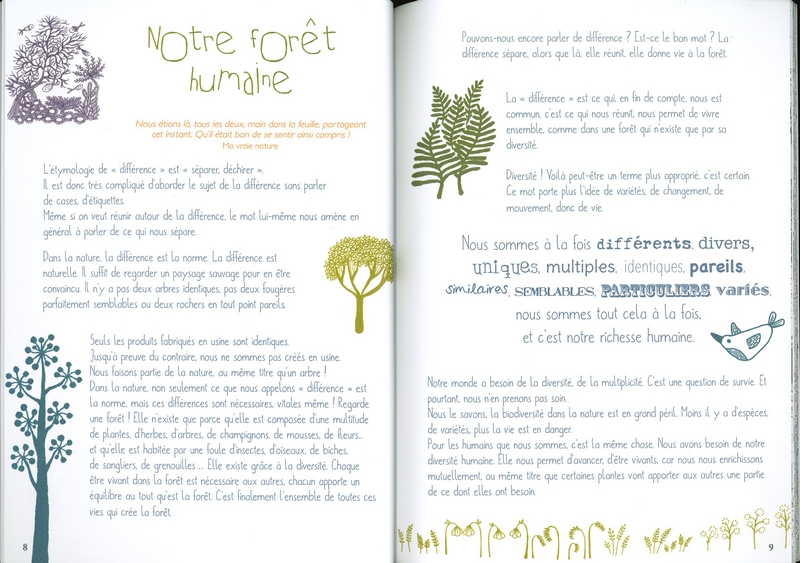 Notre forêt
humaine
Nous étions là, tous les deux, main dans la feuille, partageant
cet instant. Qu'il était bon de se sentir ainsi compris !
Ma vraie nature
L'étymologie de « différence » est « séparer, déchirer ».
Il est donc très compliqué d'aborder le sujet de la différence sans parler
de cases, d'étiquettes.
Même si on veut réunir autour de la différence, le mot lui-même nous amène en
général à parler de ce qui nous sépare.
Dans la nature, la différence est la norme. La différence est
naturelle. Il suffit de regarder un paysage sauvage pour en être
convaincu. Il n'y a pas deux arbres identiques, pas deux fougères
parfaitement semblables ou deux rochers en tout point pareils.
Seuls les produits fabriqués en usine sont identiques.
Jusqu'à preuve du contraire, nous ne sommes pas créés en usine.
Nous faisons partie de la nature, au même titre qu'un arbre !
Dans la nature, non seulement ce que nous appelons « différence » est
la norme, mais ces différences sont nécessaires, vitales même ! Regarde
une forêt ! Elle n'existe que parce qu'elle est composée d'une multitude
de plantes, d'herbes, d'arbres, de champignons, de mousses, de fleurs...
et qu'elle est habitée par une foule d'insectes, d'oiseaux, de biches,
de sangliers, de grenouilles... Elle existe grâce à la diversité. Chaque
être vivant dans la forêt est nécessaire aux autres, chacun apporte un
équilibre au tout qu'est la forêt. C'est finalement l'ensemble de toutes ces
vies qui crée la forêt.
8
Pouvons-nous encore parler de différence ? Est-ce le bon mot ? La
différence sépare, alors que là, elle réunit, elle donne vie à la forêt.
La « différence » est ce qui, en fin de compte, nous est
commun, c'est ce qui nous réunit, nous permet de vivre
ensemble, comme dans une forêt qui n'existe que par sa
diversité.
Diversité ! Voilà peut-être un terme plus approprié, c'est certain.
Ce mot porte plus l'idée de variétés, de changement, de
mouvement, donc de vie.
Nous sommes à la fois différents, divers,
uniques, multiples, identiques, pareils,
similaires, SEMBLABLES, PARTICULIERS, variés,
nous sommes tout cela à la fois,
et c'est notre richesse humaine.
Notre monde a besoin de la diversité, de la multiplicité. C'est une question de survie. Et
pourtant, nous n'en prenons pas soin.
Nous le savons, la biodiversité dans la nature est en grand péril. Moins il y a d'espèces,
de variétés, plus la vie est en danger.
Pour les humains que nous sommes, c'est la même chose. Nous avons besoin de notre
diversité humaine. Elle nous permet d'avancer, d'être vivants, car nous nous enrichissons
mutuellement, au même titre que certaines plantes vont apporter aux autres une partie
de ce dont elles ont besoin.
9